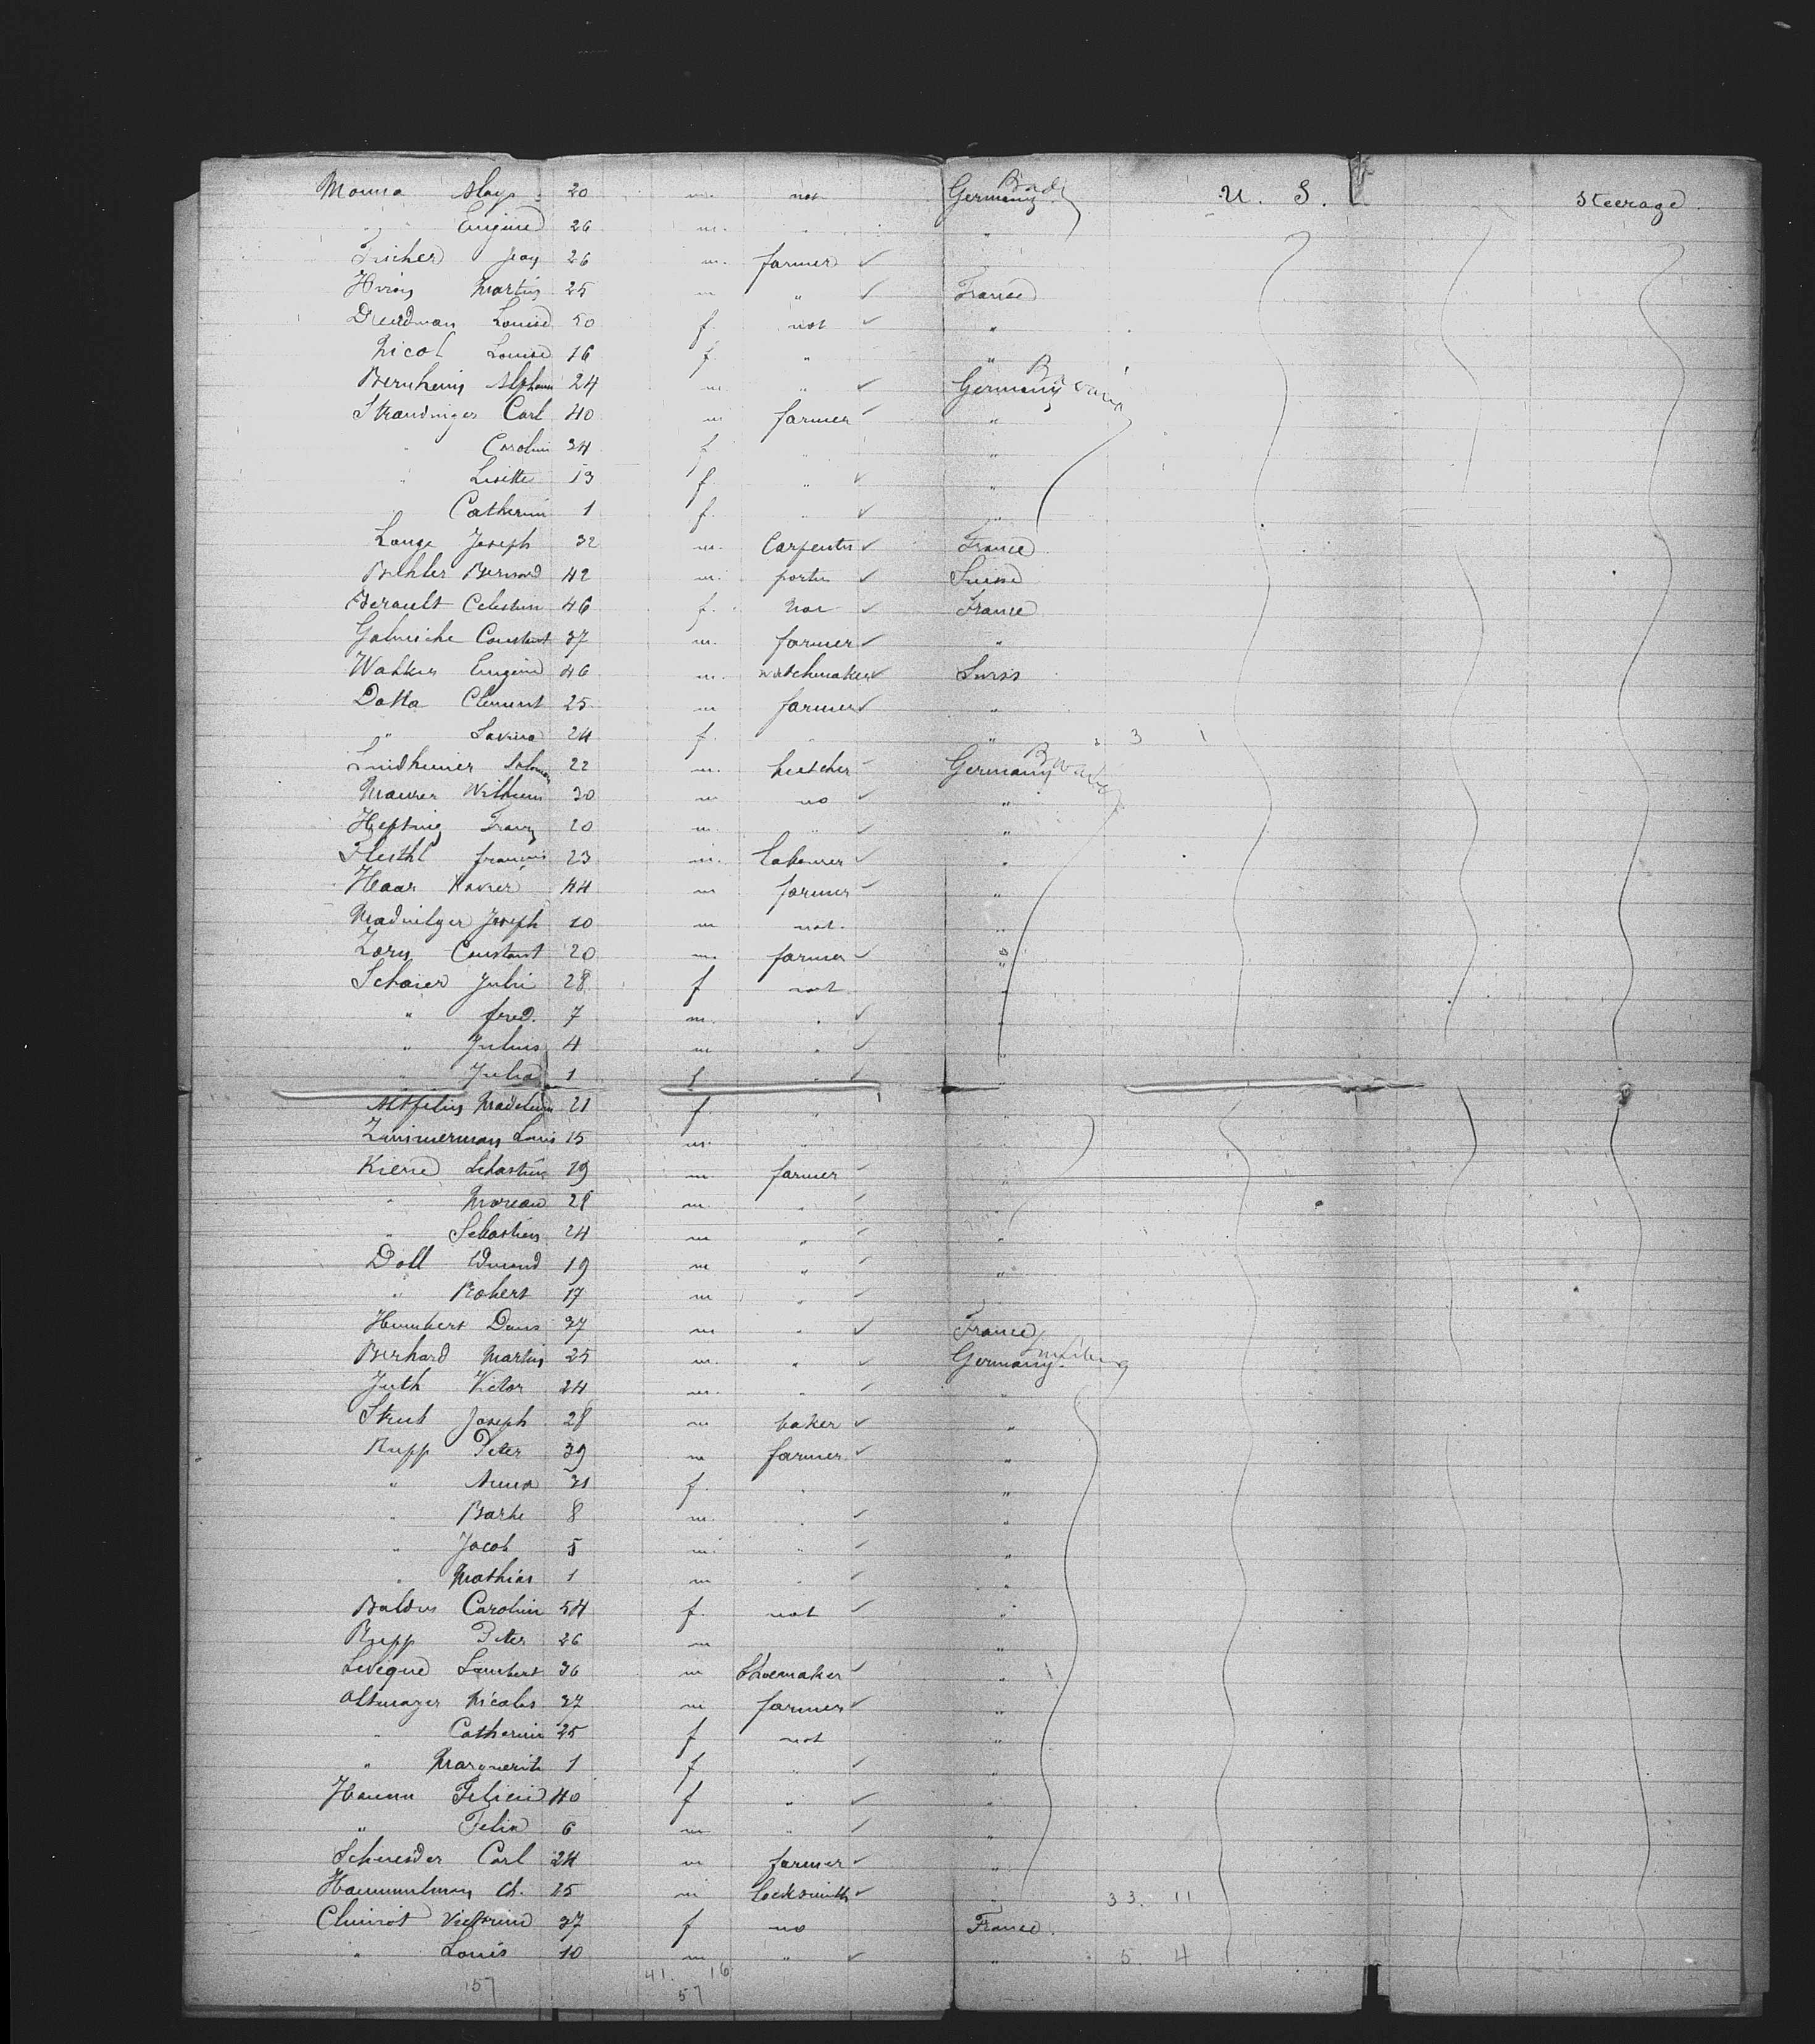 Mouna Aloys 20 m. not Germany Bade U. S. Steerage
" Eugene 26 m. " "
Fricher Jean 26 m. farmer ✓ "
Martin 25 m " ✓ France
Louise 50 f. not ✓ "
Nicol Louise 16 f. " "
Bernheim Alphons 24 m " ✓ Germany Bavaria
Strandinger Carl 40 m farmer ✓ "
" Carolin 34 f " "
" Lisette 13 f " ✓ "
" Catherin 1 f. " ✓ "
Lange Joseph 32 m. Carpenter ✓ France
Bernard 42 m. porter ✓ Suisse
Herault Celestin 46 f. not ✓ France
Constant 37 m. farmer ✓ "
Eugene 46 m. watchmaker ✓ Swiss
Dotta Clement 25 m farmer ✓ "
" Savina 24 f. " " 3 1
Salomon 22 m. butcher Germany Bavaria
Maurer Wilhem 30 m no ✓ "
Hefting Franz 20 m. " ✓ "
francois 23 m. labourer ✓ "
Haar Xavier 44 m farmer ✓ "
Joseph 10 m not. "
Zorn Constant 20 m. farmer ✓ "
Schaier Julie 28 f not "
" fred. 7 m. " ✓ "
" Julius 4 m " ✓ "
" Julia 1 f " ✓
Madelein 21 f " "
Zimmerman Louis 15 m. "
Kiene Sebastien 19 m farmer ✓ "
" Moreau 28 m. " ✓ "
" Sebastien 24 m " ✓ "
Doll Edmund 19 m " ✓ "
" Robert 17 m " ✓ "
Humbert Denis 37 m " ✓ France
Berhard Martin 25 m. " ✓ Germany
Juth Victor 24 m. " ✓ "
Strub Joseph 28 m baker ✓ "
Rupp Peter 39 m farmer ✓ "
" Anna 31 f. " "
" Barbe 8 m. " ✓ "
" Jacob 5 m " ✓ "
" Mathias 1 m " ✓ "
Carolin 54 f. not ✓ "
Rupp Peter 26 m "
Leveque Lambert 36 m Shoemaker ✓ "
Altmayer Nicolas 37 m farmer ✓ "
" Catherin 25 f not "
" Marguerite 1 f " ✓ "
Hamm Felicie 40 f " ✓ "
" Felix 6 m " ✓ "
Schneider Carl 24 m farmer ✓ "
Ch. 25 m locksmith ✓ " 33. 11
Victorine 37 f no France.
" Louis 10 m " ✓ " 5. 4
157 41. 16
57